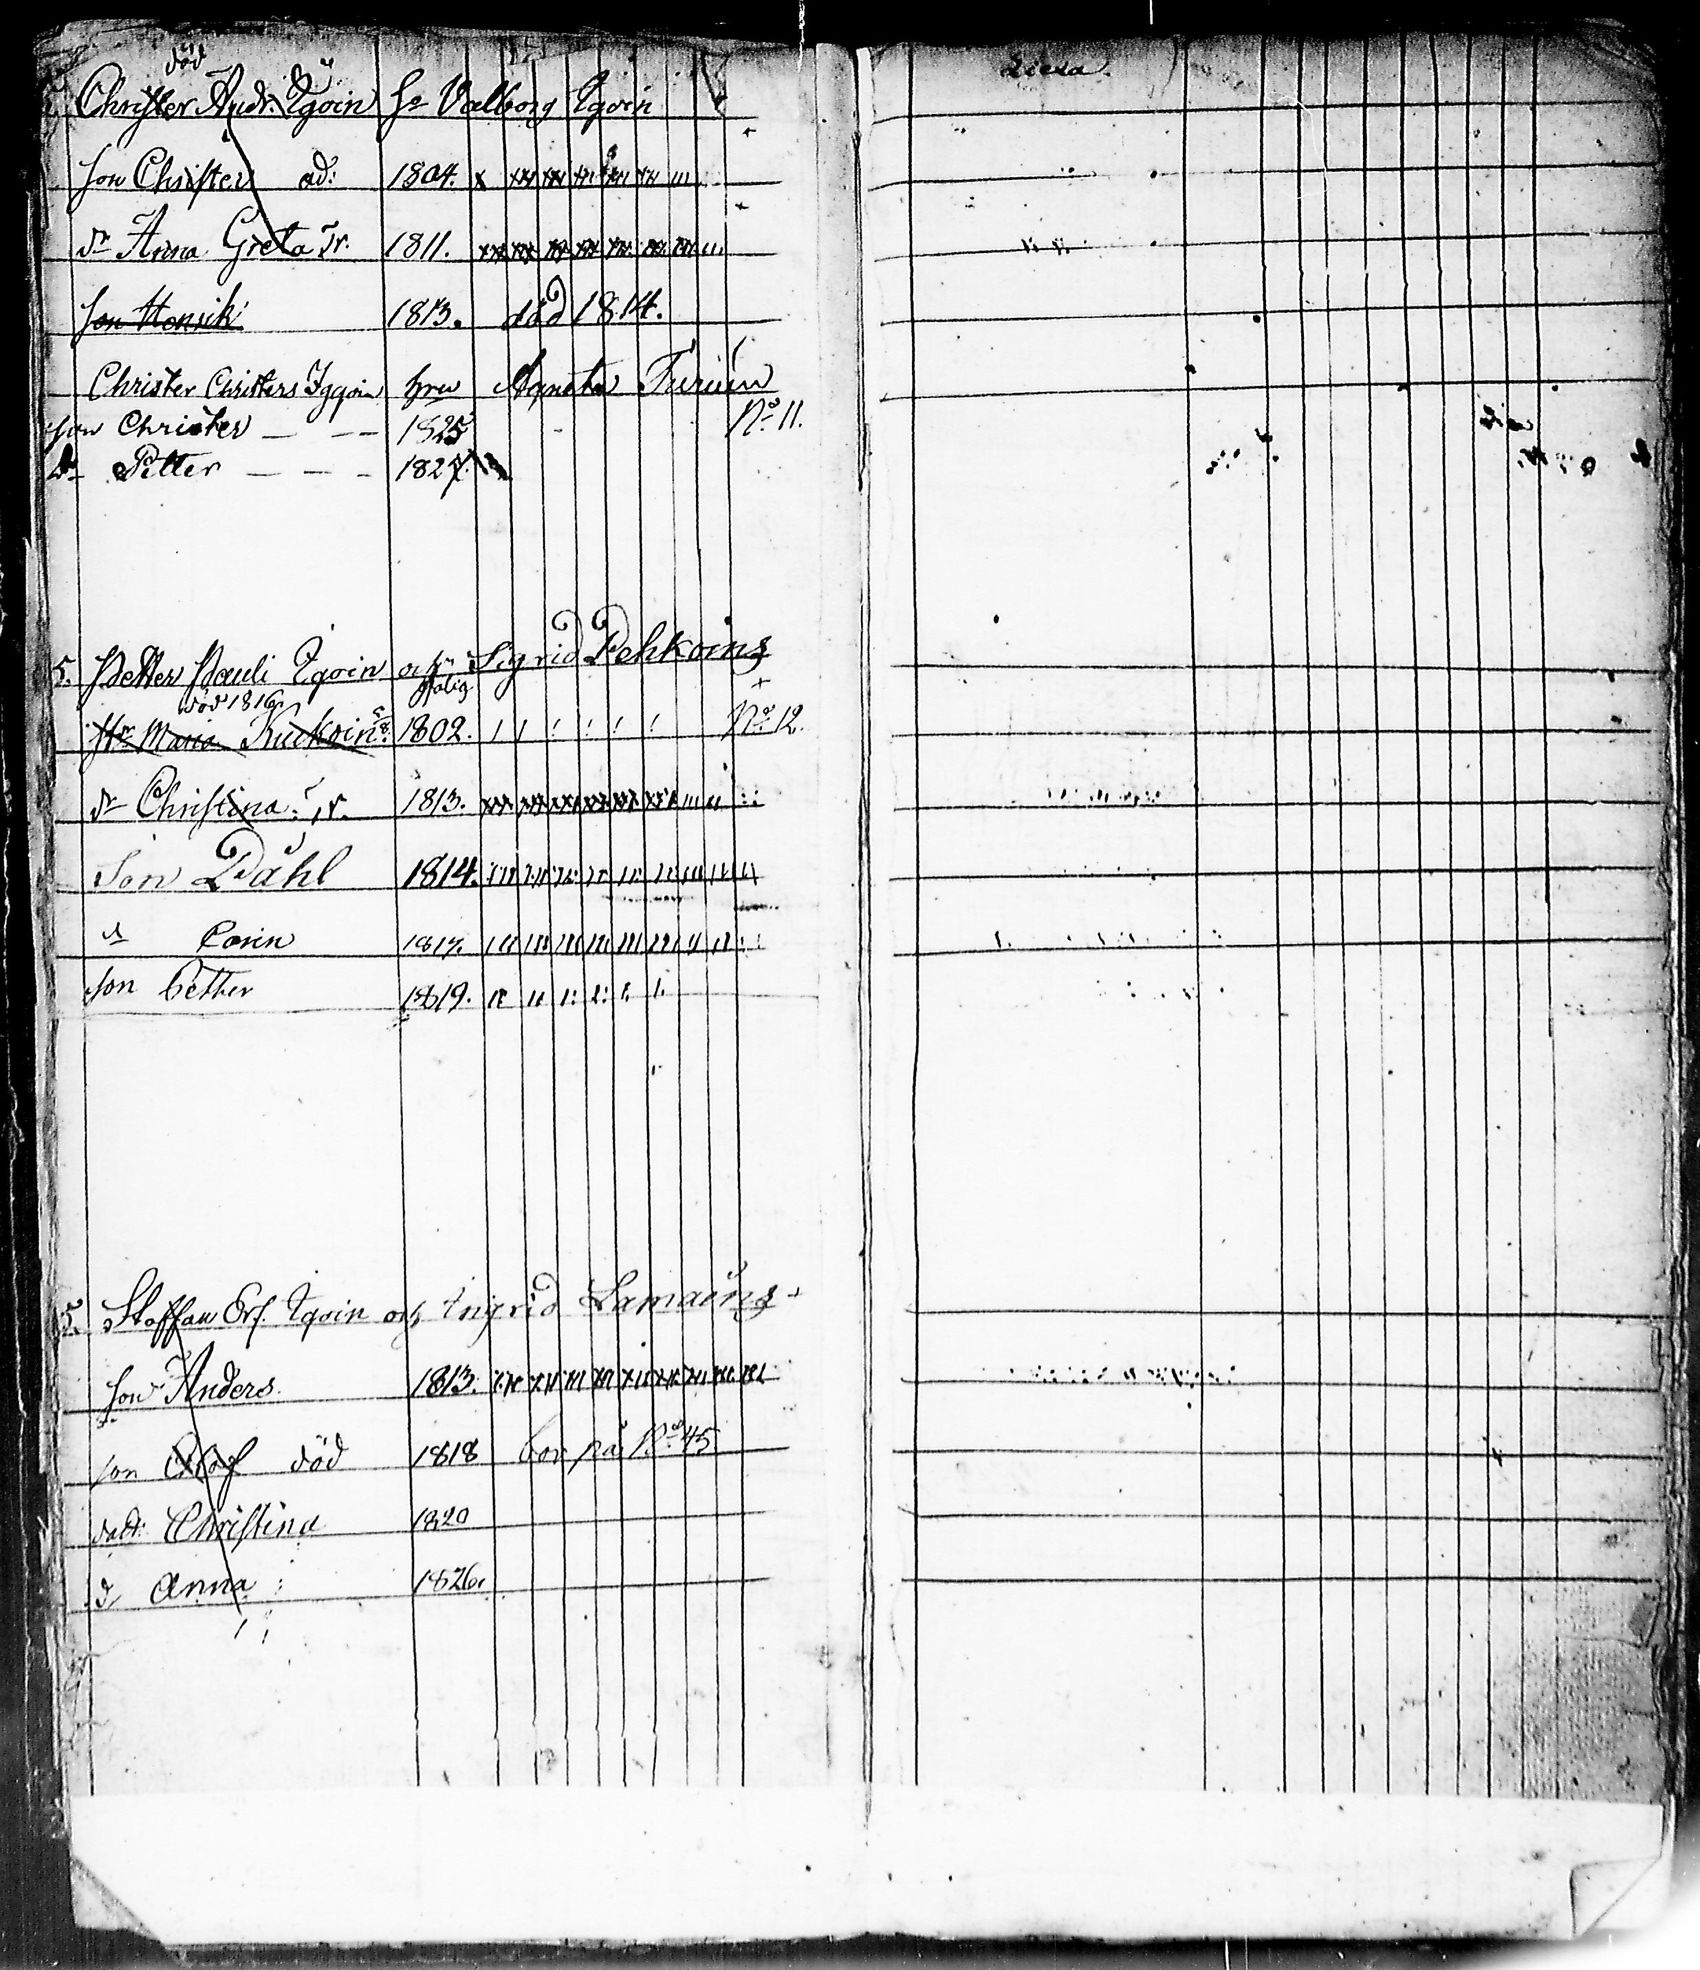 död
Christer Andr. Igoin Hr Valborg Igoin
son Christer ad: 1804. x
dr Anna Greta Jr. 1811.
son Henrik 1813. död 1814.
Christer Christers Iggoin hru Agneta Turiain
son Christer — — — 1825 No 11.
dr Petter — — — 1827.
5. Petter Pauli Igoin och hr Sigrid Pehkoing +
död 1816
Hr Maria Kuckoin 1802. No 12.
dr Christina Jr. 1813.
Son Påhl 1814.
dr Carin 1817.
son Petter 1819.
5. Staffan Ers. Igoin och Ingrid Lamaeng +
son Anders 1813.
son Olof död 1818 bor på No 45
dott: Christina 1820
d Anna 1826.